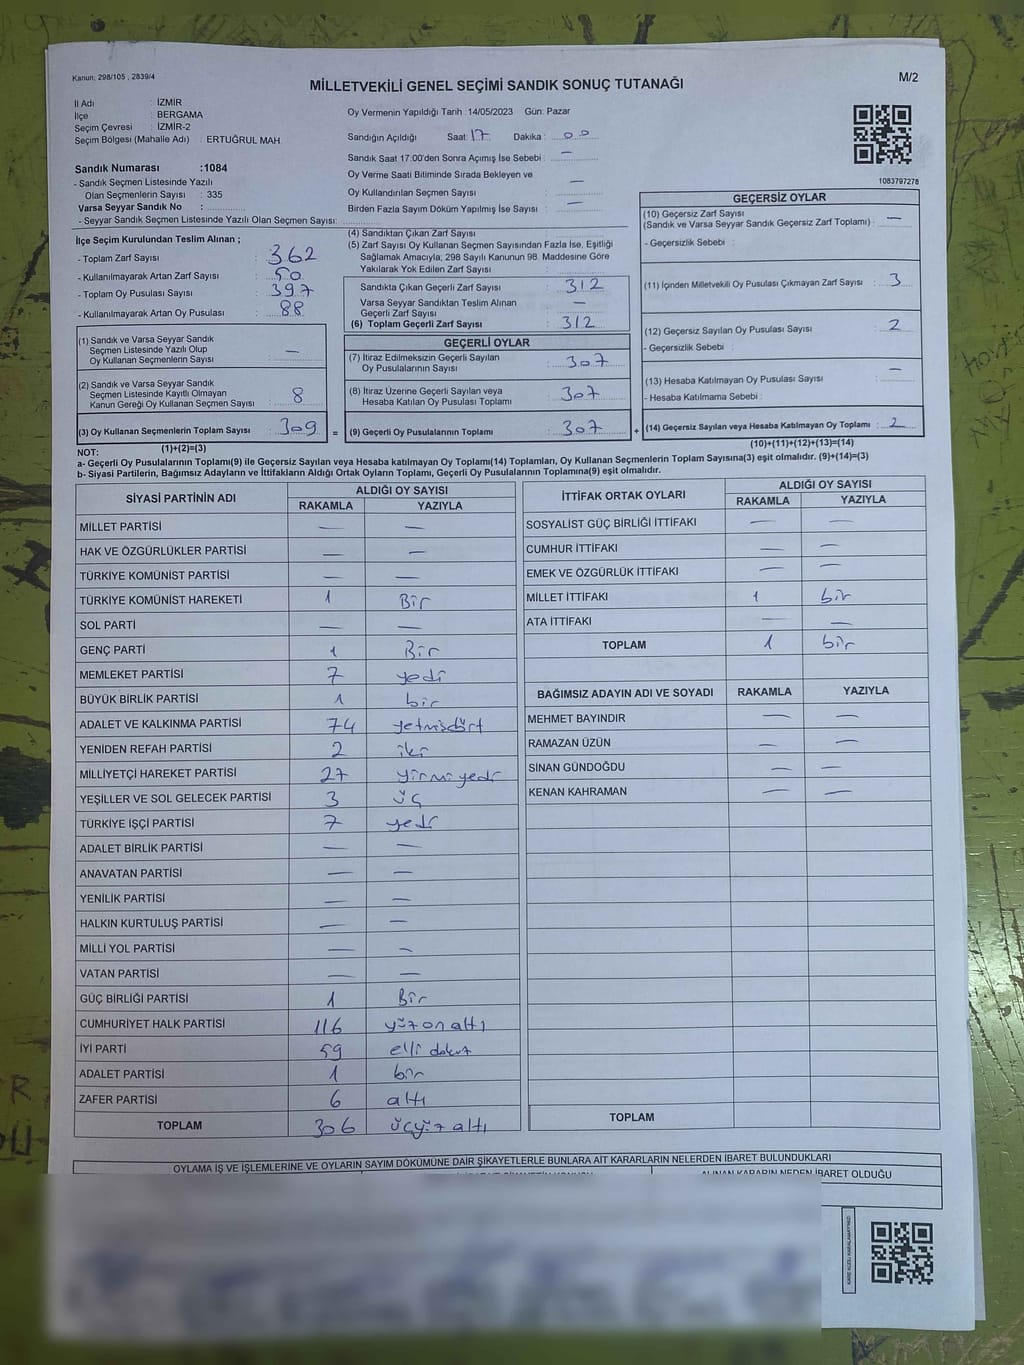 Kanun: 298/105 , 2839/4
MİLLETVEKİLİ GENEL SEÇİMİ SANDIK SONUÇ TUTANAĞI
M/2
İl Adı : İZMİR
İlçe : BERGAMA
Seçim Çevresi : İZMİR-2
Seçim Bölgesi (Mahalle Adı) : ERTUĞRUL MAH
Sandık Numarası :1084
- Sandık Seçmen Listesinde Yazılı
Olan Seçmenlerin Sayısı : 335
Varsa Seyyar Sandık No :
- Seyyar Sandık Seçmen Listesinde Yazılı Olan Seçmen Sayısı:
Oy Vermenin Yapıldığı Tarih : 14/05/2023 Gün: Pazar
Sandığın Açıldığı Saat: 17 Dakika : 00
Sandık Saat 17:00'den Sonra Açımış İse Sebebi : —
Oy Verme Saati Bitiminde Sırada Bekleyen ve
Oy Kullandırılan Seçmen Sayısı : —
Birden Fazla Sayım Döküm Yapılmış İse Sayısı : —
1083797278
İlçe Seçim Kurulundan Teslim Alınan ;
- Toplam Zarf Sayısı : 362
- Kullanılmayarak Artan Zarf Sayısı : 50
- Toplam Oy Pusulası Sayısı : 397
- Kullanılmayarak Artan Oy Pusulası : 88
(1) Sandık ve Varsa Seyyar Sandık
Seçmen Listesinde Yazılı Olup
Oy Kullanan Seçmenlerin Sayısı : —
(2) Sandık ve Varsa Seyyar Sandık
Seçmen Listesinde Kayıtlı Olmayan
Kanun Gereği Oy Kullanan Seçmen Sayısı : 8
(3) Oy Kullanan Seçmenlerin Toplam Sayısı : 309 =
(1)+(2)=(3)
(4) Sandıktan Çıkan Zarf Sayısı :
(5) Zarf Sayısı Oy Kullanan Seçmen Sayısından Fazla İse, Eşitliği
Sağlamak Amacıyla; 298 Sayılı Kanunun 98. Maddesine Göre
Yakılarak Yok Edilen Zarf Sayısı :
Sandıkta Çıkan Geçerli Zarf Sayısı : 312
Varsa Seyyar Sandıktan Teslim Alınan
Geçerli Zarf Sayısı : —
(6) Toplam Geçerli Zarf Sayısı : 312
GEÇERLİ OYLAR
(7) İtiraz Edilmeksizin Geçerli Sayılan
Oy Pusulalarının Sayısı : 307
(8) İtiraz Üzerine Geçerli Sayılan veya
Hesaba Katılan Oy Pusulası Toplamı : 307
(9) Geçerli Oy Pusulalarının Toplamı : 307 +
GEÇERSİZ OYLAR
(10) Geçersiz Zarf Sayısı
(Sandık ve Varsa Seyyar Sandık Geçersiz Zarf Toplamı) : —
- Geçersizlik Sebebi :
(11) İçinden Milletvekili Oy Pusulası Çıkmayan Zarf Sayısı : 3
(12) Geçersiz Sayılan Oy Pusulası Sayısı : 2
- Geçersizlik Sebebi :
(13) Hesaba Katılmayan Oy Pusulası Sayısı : —
- Hesaba Katılmama Sebebi :
(14) Geçersiz Sayılan veya Hesaba Katılmayan Oy Toplamı : 2
(10)+(11)+(12)+(13)=(14)
NOT:
a- Geçerli Oy Pusulalarının Toplamı(9) ile Geçersiz Sayılan veya Hesaba katılmayan Oy Toplamı(14) Toplamları, Oy Kullanan Seçmenlerin Toplam Sayısına(3) eşit olmalıdır. (9)+(14)=(3)
b- Siyasi Partilerin, Bağımsız Adayların ve İttifakların Aldığı Ortak Oyların Toplamı, Geçerli Oy Pusulalarının Toplamına(9) eşit olmalıdır.
SİYASİ PARTİNİN ADI
ALDIĞI OY SAYISI
RAKAMLA YAZIYLA
MİLLET PARTİSİ — —
HAK VE ÖZGÜRLÜKLER PARTİSİ — —
TÜRKİYE KOMÜNİST PARTİSİ — —
TÜRKİYE KOMÜNİST HAREKETİ 1 Bir
SOL PARTİ — —
GENÇ PARTİ 1 Bir
MEMLEKET PARTİSİ 7 yedi
BÜYÜK BİRLİK PARTİSİ 1 bir
ADALET VE KALKINMA PARTİSİ 74 yetmişdört
YENİDEN REFAH PARTİSİ 2 iki
MİLLİYETÇİ HAREKET PARTİSİ 27 yirmi yedi
YEŞİLLER VE SOL GELECEK PARTİSİ 3 üç
TÜRKİYE İŞÇİ PARTİSİ 7 yedi
ADALET BİRLİK PARTİSİ — —
ANAVATAN PARTİSİ — —
YENİLİK PARTİSİ — —
HALKIN KURTULUŞ PARTİSİ — —
MİLLİ YOL PARTİSİ — —
VATAN PARTİSİ — —
GÜÇ BİRLİĞİ PARTİSİ 1 Bir
CUMHURİYET HALK PARTİSİ 116 yüz on altı
İYİ PARTİ 59 elli dokuz
ADALET PARTİSİ 1 bir
ZAFER PARTİSİ 6 altı
TOPLAM 306 üçyüz altı
İTTİFAK ORTAK OYLARI
ALDIĞI OY SAYISI
RAKAMLA YAZIYLA
SOSYALİST GÜÇ BİRLİĞİ İTTİFAKI — —
CUMHUR İTTİFAKI — —
EMEK VE ÖZGÜRLÜK İTTİFAKI — —
MİLLET İTTİFAKI 1 bir
ATA İTTİFAKI — —
TOPLAM 1 bir
BAĞIMSIZ ADAYIN ADI VE SOYADI RAKAMLA YAZIYLA
MEHMET BAYINDIR — —
RAMAZAN ÜZÜN — —
SİNAN GÜNDOĞDU — —
KENAN KAHRAMAN — —
TOPLAM
OYLAMA İŞ VE İŞLEMLERİNE VE OYLARIN SAYIM DÖKÜMÜNE DAİR ŞİKAYETLERLE BUNLARA AİT KARARLARIN NELERDEN İBARET BULUNDUKLARI
ALINAN KARARIN NEDEN İBARET OLDUĞU
KARE KODU KARALAMAYINIZ!